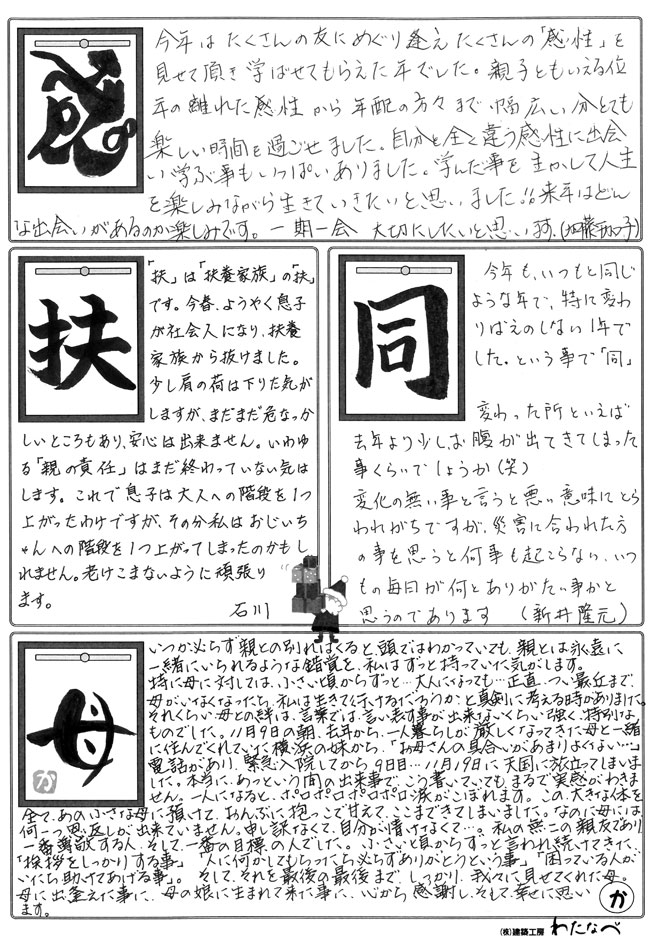 感
今年は たくさんの友に めぐり逢え たくさんの「感性」を
見せて頂き 学ばせてもらえた 年でした。親子ともいえる位
年の離れた感性 から 年配の方々まで 幅広い分とても
楽しい時間を過ごせました。自分と全く違う感性に出会
い 学ぶ事も いっぱい ありました。学んだ事を 生かして 人生
を楽しみながら生きていきたいと思いました。来年はどん
な出会いがあるのか楽しみです。一期一会 大切にしたいと思います。
扶
「扶」は「扶養家族」の「扶」
です。今春、ようやく息子
が社会人になり、扶養
家族から抜けました。
少し肩の荷は下りた気が
しますが、まだまだ危なっか
しいところもあり、安心は出来ません。いわゆ
る「親の責任」はまだ終わっていない気は
します。これで息子は大人への階段を1つ
上がったわけですが、その分私はおじいち
ゃんへの階段を1つ上がってしまったのかもし
れません。老けこまないように頑張り
ます。
石川
同
今年も、いつもと同じ
ような年で、特に変わ
りばえのしない1年で
した。という事で「同」
変わった所といえば
去年より少しお腹が出てきてしまった
事くらいでしょうか(笑)
変化の無い事と言うと悪い意味にとら
われがちですが、災害に合われた方
の事を思うと何事も起こらない、いつ
もの毎日が何とありがたい事かと
思うのであります (新井隆元)
母
か
いつか必らず親との別れはくると頭ではわかっていても、親とは永遠に
一緒にいられるような錯覚を、私はずっと持っていた気がします。
特に母に対しては、小さい頃からずっと…大人になっても…正直、つい最近まで
母がいなくなったら、私は生きて行けるだろうか?と真剣に考える時がありました。
それくらい母との絆は、言葉では言い表す事が出来ないくらい強く、特別な
ものでした。11月9日の朝、去年から、一人暮らしが厳しくなってきた母と一緒
に住んでくれていた横浜の妹から、「お母さんの具合いがあまりよくない…」
電話があり、緊急入院してから9日目…11月19日に天国に旅立ってしまいま
した。本当に、あっという間の出来事で、こう書いていてもまるで実感がわきま
せん。一人になると、ポロポロポロポロ涙がこぼれます。この大きな体を
全て、あの小さな母に預けて、おんぶに抱っこで甘えて、ここまできてしまいました。なのに母には
何一つ恩返しが出来ていません。申し訳なくて、自分が情けなくて…。私の無二の親友であり
一番尊敬する人、そして、一番の目標の人でした。小さい頃からずっと言われ続けてきた、
「挨拶をしっかりする事」 人に何かしてもらったら必らずありがとうという事」「困っている人が
いたら助けてあげる事」。そして、それを最後の最後まで しっかり、我々に見せてくれた母。
母に出逢えた事に、母の娘に生まれて来た事に、心から感謝し、そして、幸せに思い
ます。
か
(株)建築工房 わたなべ